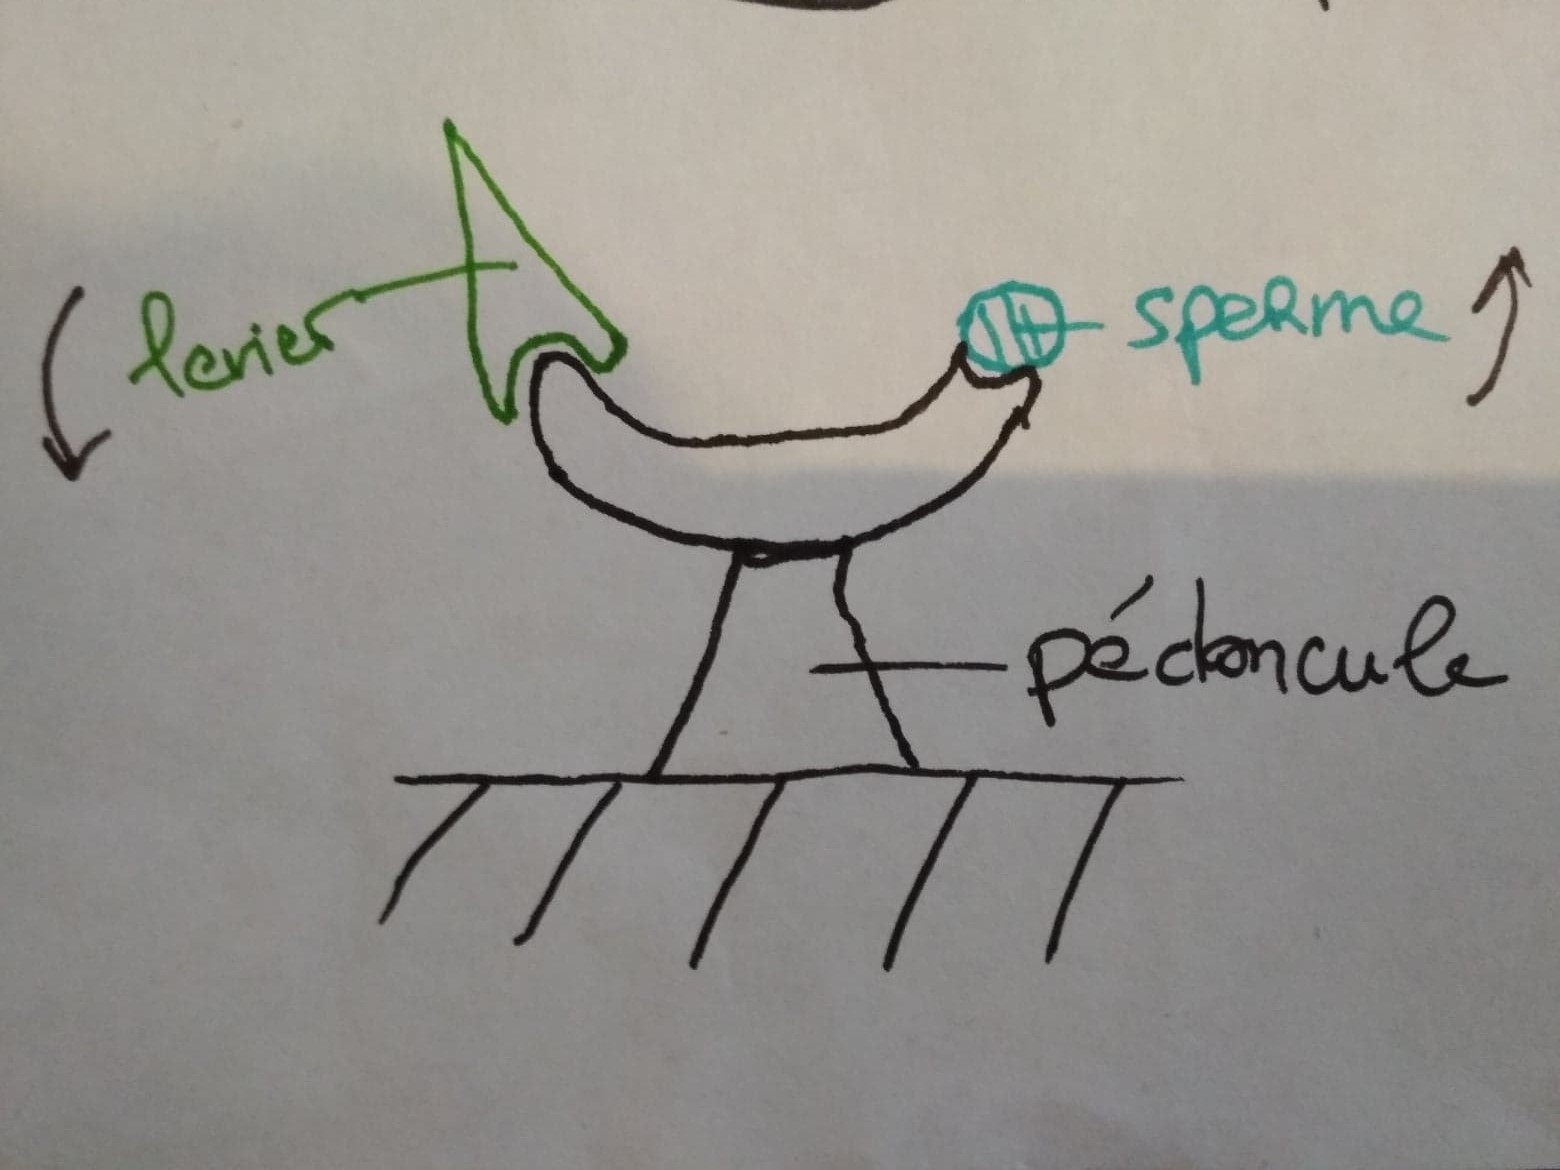 levier
sperme
pédoncule